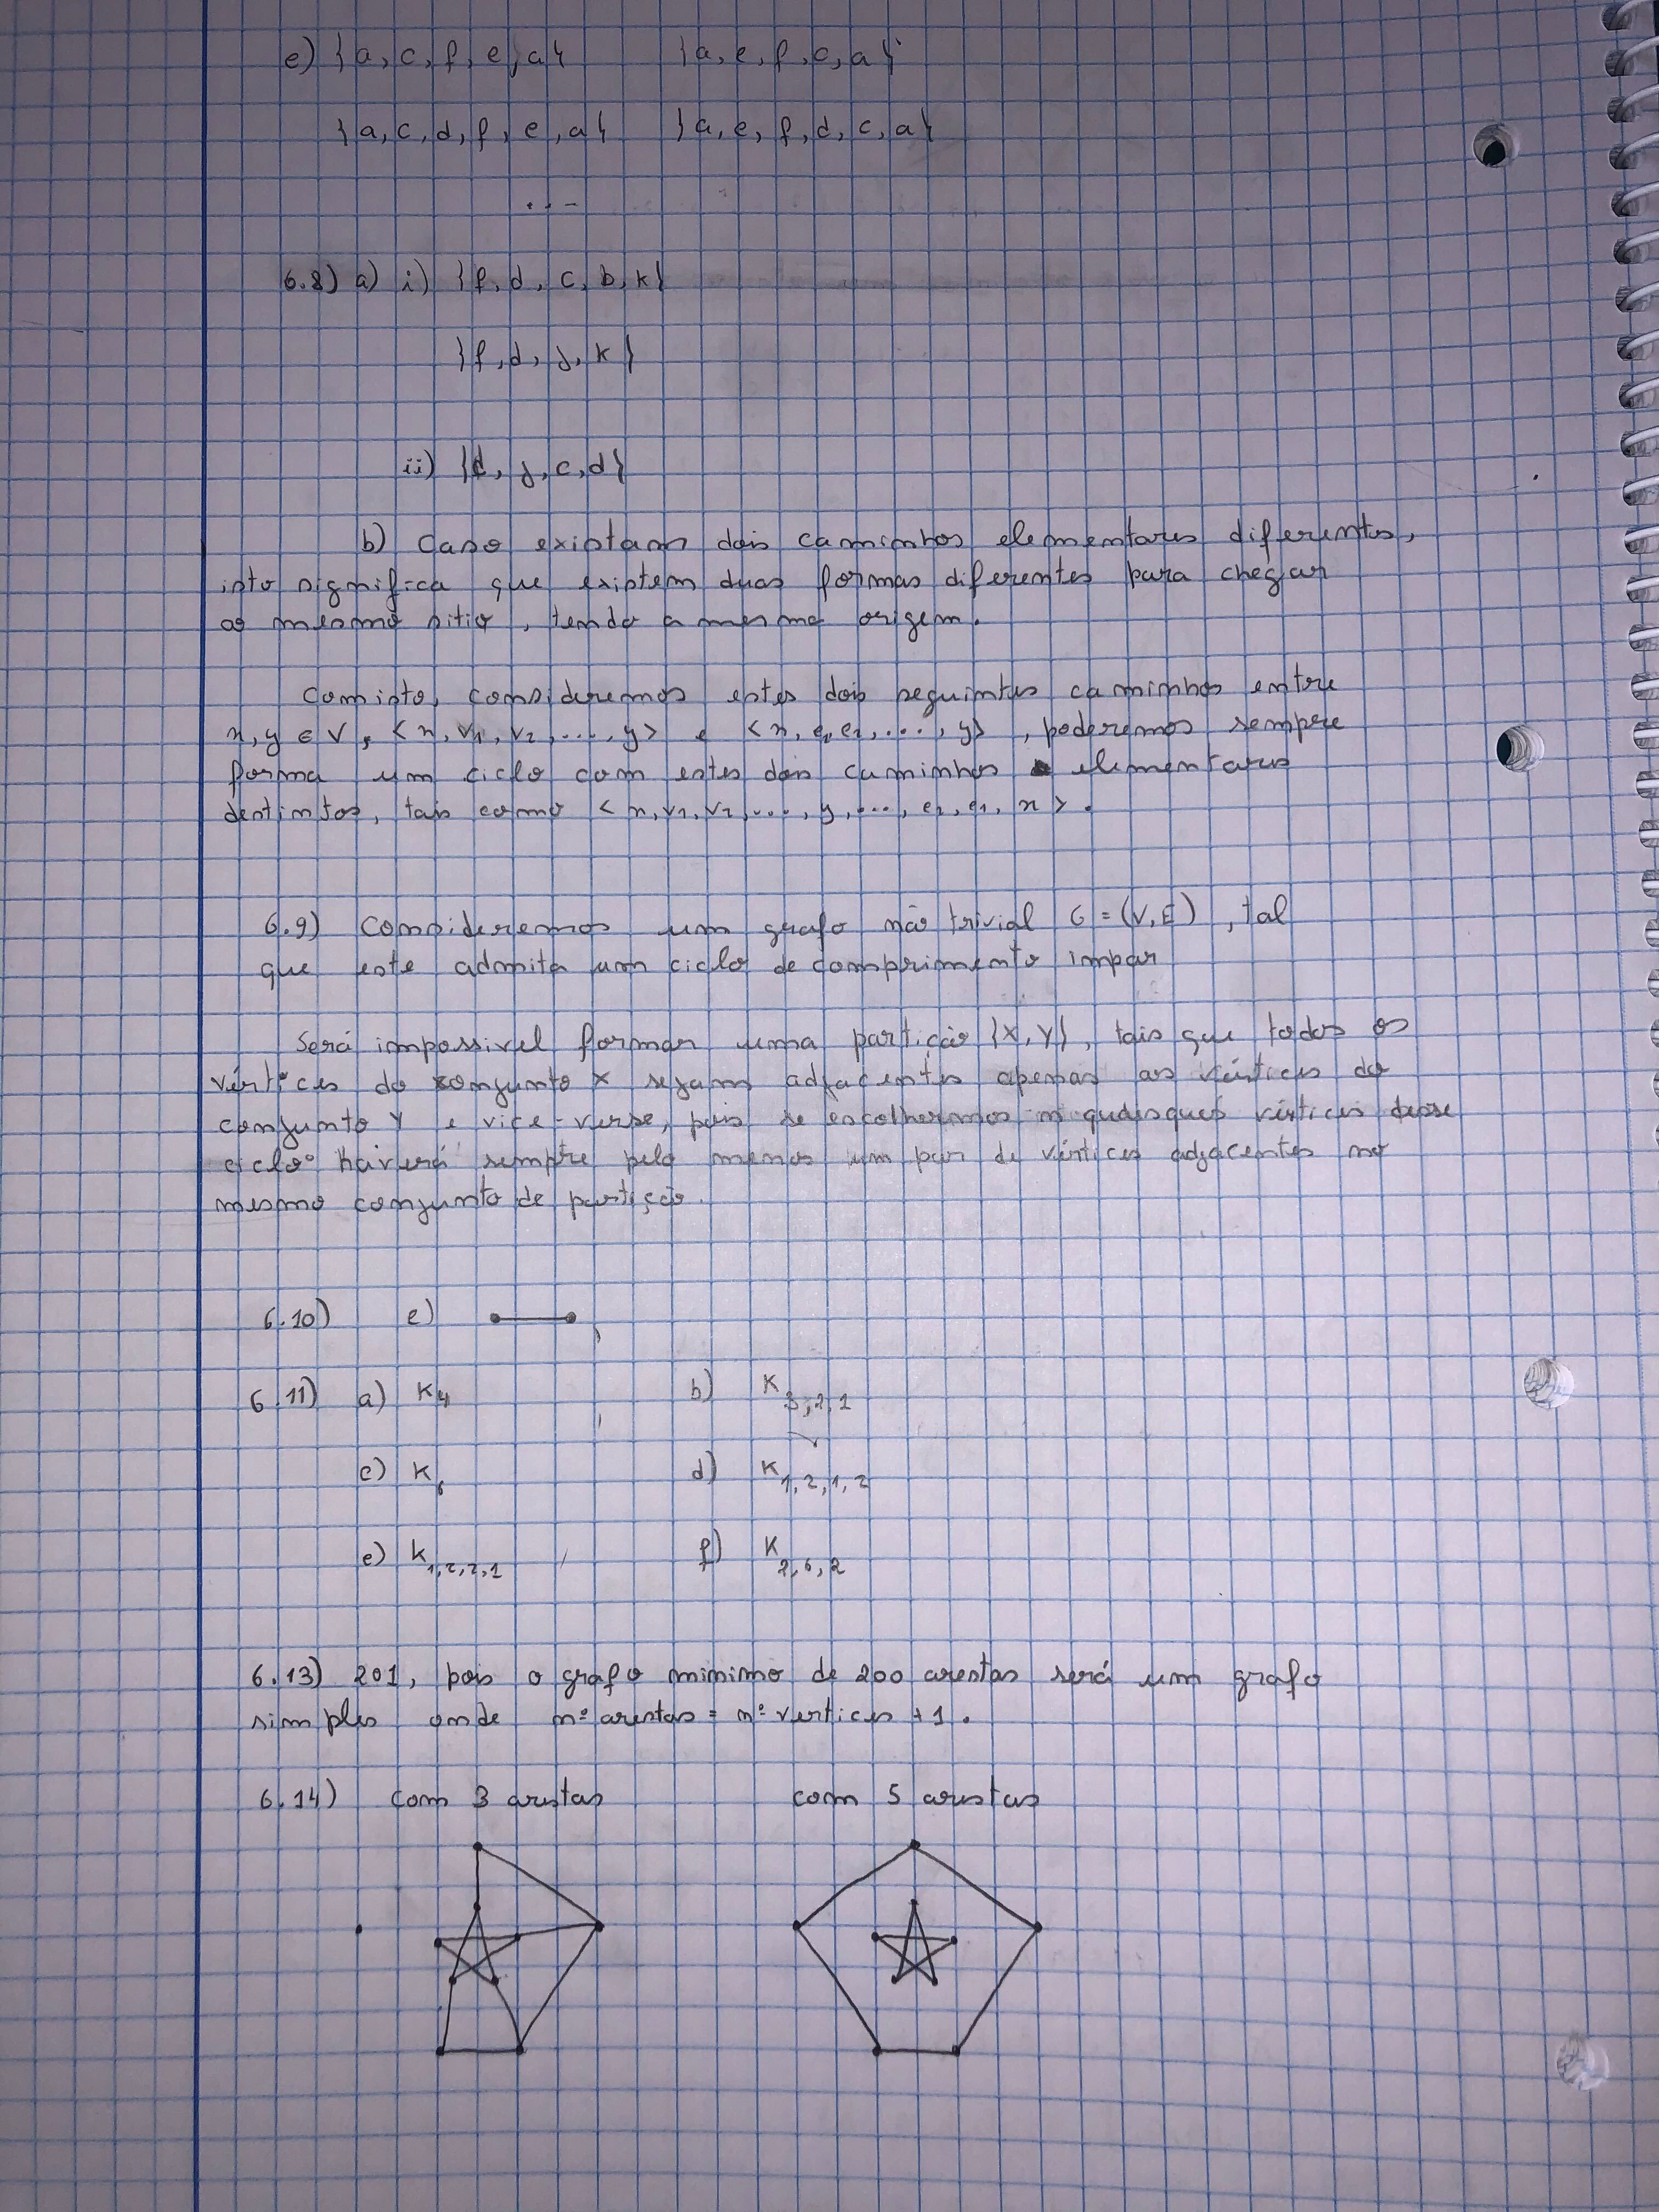 e) {a, c, f, e, a} {a, e, f, c, a}
{a, c, d, f, e, a} {a, e, f, d, c, a}
...
6.8) a) i) {f, d, c, b, k}
{f, d, j, k}
ii) {d, j, c, d}
b) Caso existam dois caminhos elementares diferentes,
isto significa que existem duas formas diferentes para chegar
ao mesmo sitio, tendo a mesma origem.
Com isto, consideremos estes dois seguintes caminhos entre
x, y ∈ V, <x, v1, v2, ..., y> e <x, e1, e2, ..., y>, poderemos sempre
forma um ciclo com estes dois caminhos elementares
destintos, tais como <x, v1, v2, ..., y, ..., e2, e1, x>.
6.9) Consideremos um grafo não trivial G = (V, E), tal
que este admita um ciclo de comprimento impar
Será impossivel formar uma partição {X, Y}, tais que todos os
vértices do conjunto X sejam adjacentes apenas aos vértices do
conjunto Y e vice-versa, pois se escolhermos n quaisquer vértices desse
ciclo haverá sempre pelo menos um par de vértices adjacentes no
mesmo conjunto de partição.
6.10) e)
6.11) a) K4 b) K3,2,1
c) K6 d) K1,2,1,2
e) K1,2,2,1 f) K2,6,2
6.13) 201, pois o grafo minimo de 200 arestas será um grafo
simples onde nº arestas = nº vertices + 1.
6.14) com 3 arestas com 5 arestas